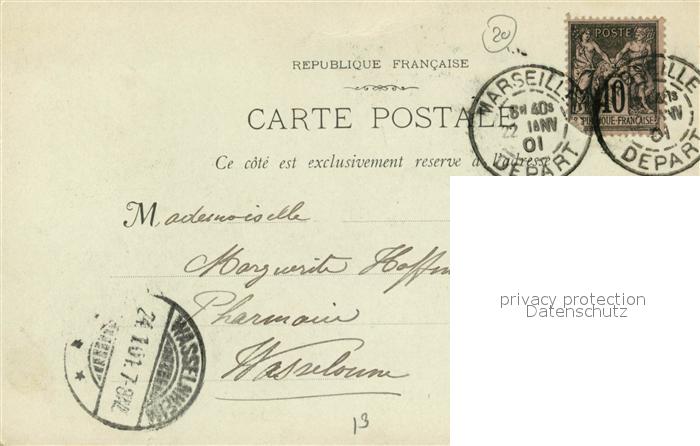 20
REPUBLIQUE FRANÇAISE
CARTE POSTALE
Ce côté est exclusivement reservé à l'adresse
POSTE
10
REPUBLIQUE-FRANÇAISE
MARSEILLE
22 JANV
01
DEPART
MARSEILLE
01
DEPART
privacy protection
Datenschutz
Mademoiselle
Marguerite Hoffm
Pharmacie
Wasselonne
WASSELNHEIM
24.1.01.7-8N.
13